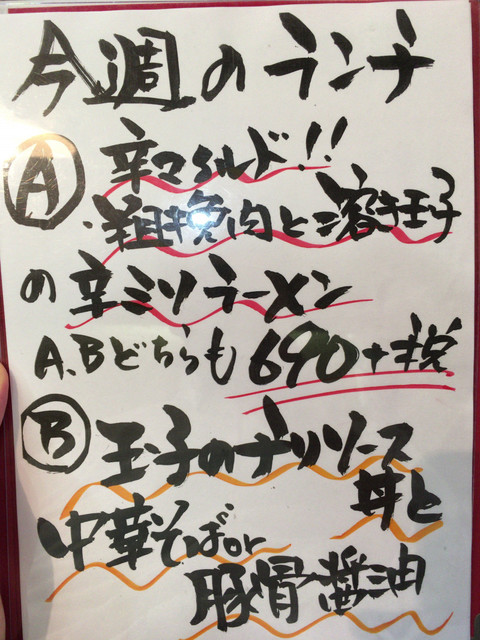 今週のランチ
Ⓐ 辛マイルド!!
・粗挽肉と溶き玉子
の辛ミソラーメン
A、Bどちらも690+税
Ⓑ 玉子のチリソース
丼と
中華そばor
豚骨醤油